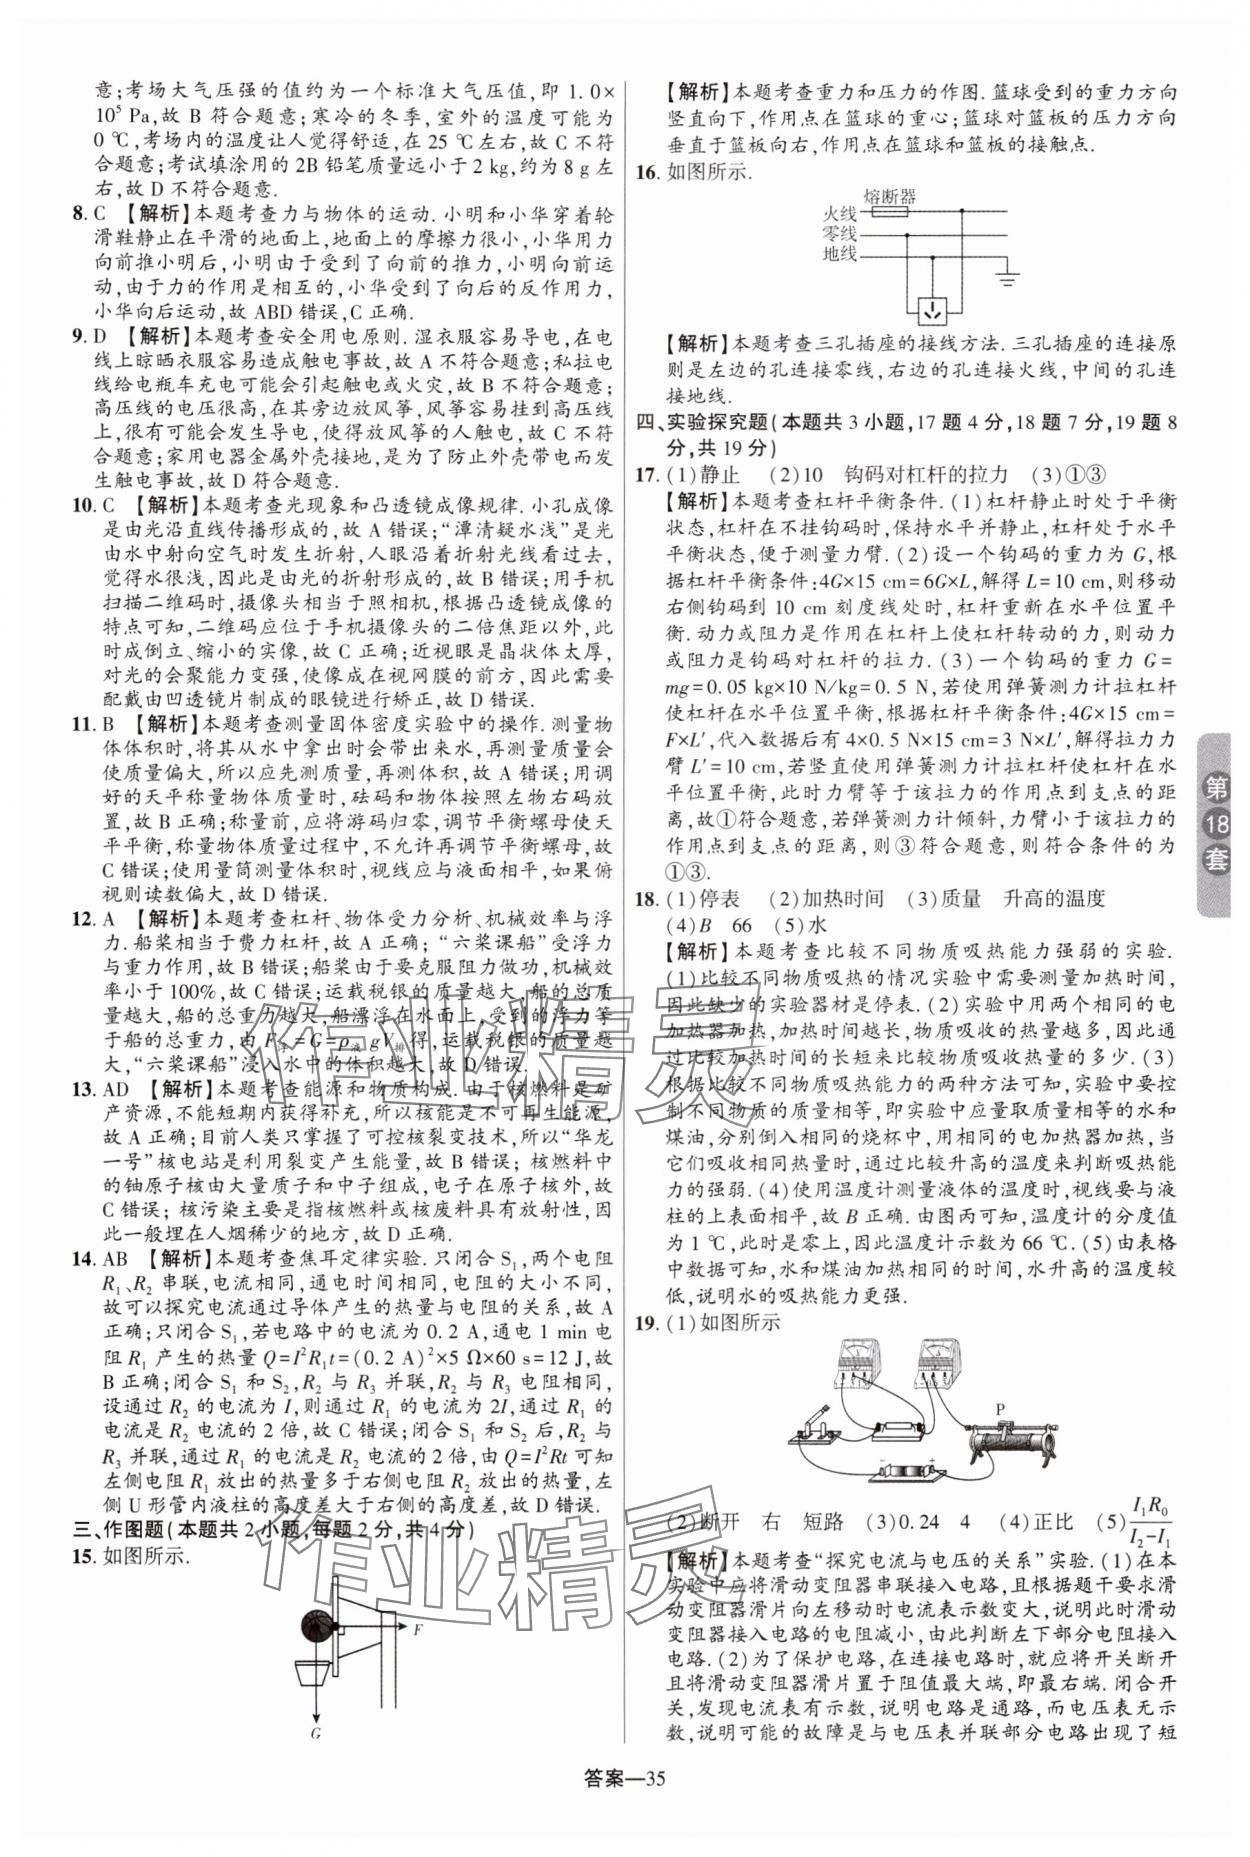 意;考场大气压强的值约为一个标准大气压值,即 1.0×
10⁵ Pa,故 B 符合题意;寒冷的冬季,室外的温度可能为
0 ℃,考场内的温度让人觉得舒适,在 25 ℃左右,故 C 不符
合题意;考试填涂用的 2B 铅笔质量远小于 2 kg,约为 8 g 左
右,故 D 不符合题意.
8. C 【解析】本题考查力与物体的运动.小明和小华穿着轮
滑鞋静止在平滑的地面上,地面上的摩擦力很小,小华用力
向前推小明后,小明由于受到了向前的推力,小明向前运
动,由于力的作用是相互的,小华受到了向后的反作用力,
小华向后运动,故 ABD 错误,C 正确.
9. D 【解析】本题考查安全用电原则.湿衣服容易导电,在电
线上晾晒衣服容易造成触电事故,故 A 不符合题意;私拉电
线给电瓶车充电可能会引起触电或火灾,故 B 不符合题意;
高压线的电压很高,在其旁边放风筝,风筝容易挂到高压线
上,很有可能会发生导电,使得放风筝的人触电,故 C 不符
合题意;家用电器金属外壳接地,是为了防止外壳带电而发
生触电事故,故 D 符合题意.
10. C 【解析】本题考查光现象和凸透镜成像规律.小孔成像
是由光沿直线传播形成的,故 A 错误;“潭清疑水浅”是光
由水中射向空气时发生折射,人眼沿着折射光线看过去,
觉得水很浅,因此是由光的折射形成的,故 B 错误;用手机
扫描二维码时,摄像头相当于照相机,根据凸透镜成像的
特点可知,二维码应位于手机摄像头的二倍焦距以外,此
时成倒立、缩小的实像,故 C 正确;近视眼是晶状体太厚,
对光的会聚能力变强,使像成在视网膜的前方,因此需要
配戴由凹透镜片制成的眼镜进行矫正,故 D 错误.
11. B 【解析】本题考查测量固体密度实验中的操作.测量物
体体积时,将其从水中拿出时会带出来水,再测量质量会
使质量偏大,所以应先测质量,再测体积,故 A 错误;用调
好的天平称量物体质量时,砝码和物体按照左物右码放
置,故 B 正确;称量前,应将游码归零,调节平衡螺母使天
平平衡,称量物体质量过程中,不允许再调节平衡螺母,故
C 错误;使用量筒测量体积时,视线应与液面相平,如果俯
视则读数偏大,故 D 错误.
12. A 【解析】本题考查杠杆、物体受力分析、机械效率与浮
力.船桨相当于费力杠杆,故 A 正确;“六桨课船”受浮力
与重力作用,故 B 错误;船桨由于要克服阻力做功,机械效
率小于 100%,故 C 错误;运载税银的质量越大,船的总质
量越大,船的总重力越大,船漂浮在水面上,受到的浮力等
于船的总重力,由 F浮=G=ρ液gV排得,运载税银的质量越
大,“六桨课船”浸入水中的体积越大,故 D 错误.
13. AD 【解析】本题考查能源和物质构成.由于核燃料是矿
产资源,不能短期内获得补充,所以核能是不可再生能源,
故 A 正确;目前人类只掌握了可控核裂变技术,所以“华龙
一号”核电站是利用裂变产生能量,故 B 错误;核燃料中
的铀原子核由大量质子和中子组成,电子在原子核外,故 C
错误;核污染主要是指核燃料或核废料具有放射性,因
此一般埋在人烟稀少的地方,故 D 正确.
14. AB 【解析】本题考查焦耳定律实验.只闭合 S₁,两个电阻
R₁、R₂ 串联,电流相同,通电时间相同,电阻的大小不同,
故可以探究电流通过导体产生的热量与电阻的关系,故 A
正确;只闭合 S₁,若电路中的电流为 0.2 A,通电 1 min 电
阻 R₁ 产生的热量 Q=I²R₁t=(0.2 A)²×5 Ω×60 s=12 J,故
B 正确;闭合 S₁ 和 S₂,R₂ 与 R₃ 并联,R₂ 与 R₃ 电阻相同,
设通过 R₂ 的电流为 I,则通过 R₁ 的电流为 2I,通过 R₁ 的
电流是 R₂ 电流的 2 倍,故 C 错误;闭合 S₁ 和 S₂ 后,R₂ 与
R₃ 并联,通过 R₁ 的电流是 R₂ 电流的 2 倍,由 Q=I²Rt 可知
左侧电阻 R₁ 放出的热量多于右侧电阻 R₂ 放出的热量,左
侧 U 形管内液柱的高度差大于右侧的高度差,故 D 错误.
三、作图题(本题共 2 小题,每题 2 分,共 4 分)
15. 如图所示.
F
G
【解析】本题考查重力和压力的作图.篮球受到的重力方向
竖直向下,作用点在篮球的重心;篮球对篮板的压力方向
垂直于篮板向右,作用点在篮球和篮板的接触点.
16. 如图所示.
熔断器
火线
零线
地线
【解析】本题考查三孔插座的接线方法.三孔插座的连接原
则是左边的孔连接零线,右边的孔连接火线,中间的孔连
接地线.
四、实验探究题(本题共 3 小题,17 题 4 分,18 题 7 分,19 题 8
分,共 19 分)
17. (1)静止 (2)10 钩码对杠杆的拉力 (3)①③
【解析】本题考查杠杆平衡条件.(1)杠杆静止时处于平衡
状态,杠杆在不挂钩码时,保持水平并静止,杠杆处于水平
平衡状态,便于测量力臂.(2)设一个钩码的重力为 G,根
据杠杆平衡条件:4G×15 cm=6G×L,解得 L=10 cm,则移动
右侧钩码到 10 cm 刻度线处时,杠杆重新在水平位置平
衡.动力或阻力是作用在杠杆上使杠杆转动的力,则动力
或阻力是钩码对杠杆的拉力.(3)一个钩码的重力 G=
mg=0.05 kg×10 N/kg=0.5 N,若使用弹簧测力计拉杠杆
使杠杆在水平位置平衡,根据杠杆平衡条件:4G×15 cm=
F×L′,代入数据后有 4×0.5 N×15 cm=3 N×L′,解得拉力力
臂 L′=10 cm,若竖直使用弹簧测力计拉杠杆使杠杆在水
平位置平衡,此时力臂等于该拉力的作用点到支点的距
离,故①符合题意,若弹簧测力计倾斜,力臂小于该拉力的
作用点到支点的距离,则③符合题意,则符合条件的为
①③.
18. (1)停表 (2)加热时间 (3)质量 升高的温度
(4)B 66 (5)水
【解析】本题考查比较不同物质吸热能力强弱的实验.
(1)比较不同物质吸热的情况实验中需要测量加热时间,
因此缺少的实验器材是停表.(2)实验中用两个相同的电
加热器加热,加热时间越长,物质吸收的热量越多,因此通
过比较加热时间的长短来比较吸收热量的多少.(3)
根据比较不同物质吸热能力的两种方法可知,实验中要控
制不同物质的质量相等,即实验中应量取质量相等的水和
煤油,分别倒入相同的烧杯中,用相同的电加热器加热,当
它们吸收相同热量时,通过比较升高的温度来判断吸热能
力的强弱.(4)使用温度计测量液体的温度时,视线要与液
柱的上表面相平,故 B 正确.由图丙可知,温度计的分度值
为 1 ℃,此时是零上,因此温度计示数为 66 ℃.(5)由表格
中数据可知,水和煤油加热相同的时间,水升高的温度较
低,说明水的吸热能力更强.
19. (1)如图所示
P
− +
(2)断开 右 短路 (3)0.24 4 (4)正比 (5)I₁R₀/(I₂−I₁)
【解析】本题考查“探究电流与电压的关系”实验.(1)在本
实验中应将滑动变阻器串联接入电路,且根据题干要求滑
动变阻器滑片向左移动时电流表示数变大,说明此时滑动
变阻器接入电路的电阻减小,由此判断左下部分电阻接入
电路.(2)为了保护电路,在连接电路时,就应将开关断开
且将滑动变阻器滑片置于阻值最大端,即最右端.闭合开
关,发现电流表有示数,说明电路是通路,而电压表无示
数,说明可能的故障是与电压表并联部分电路出现了短
第18套
答案—35
作业精灵
作业精灵